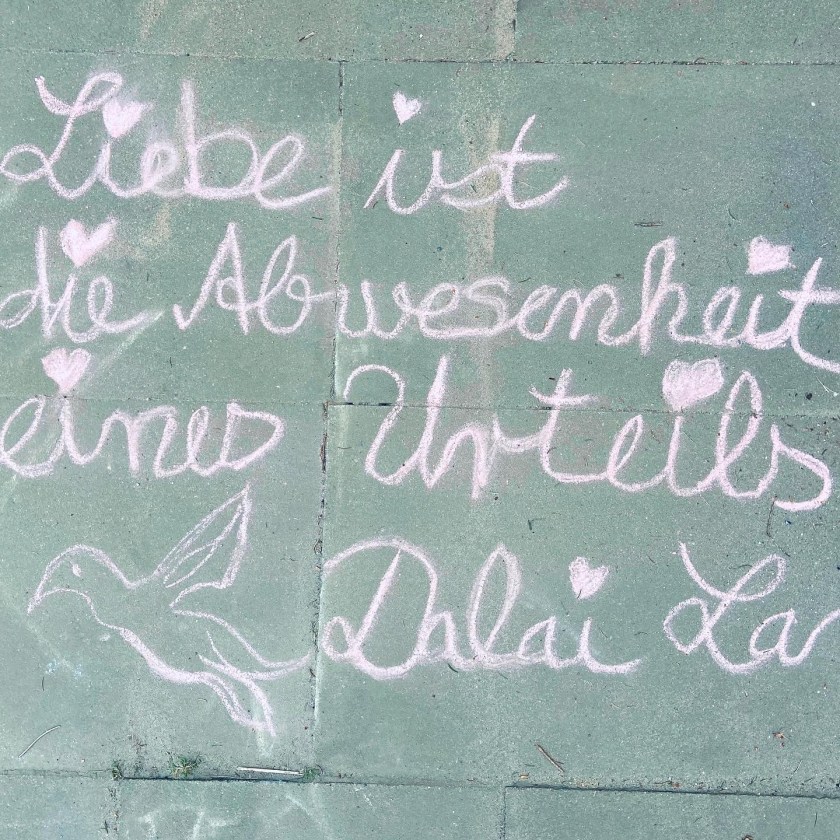 Liebe ist
die Abwesenheit
eines Urteils
Dalai La